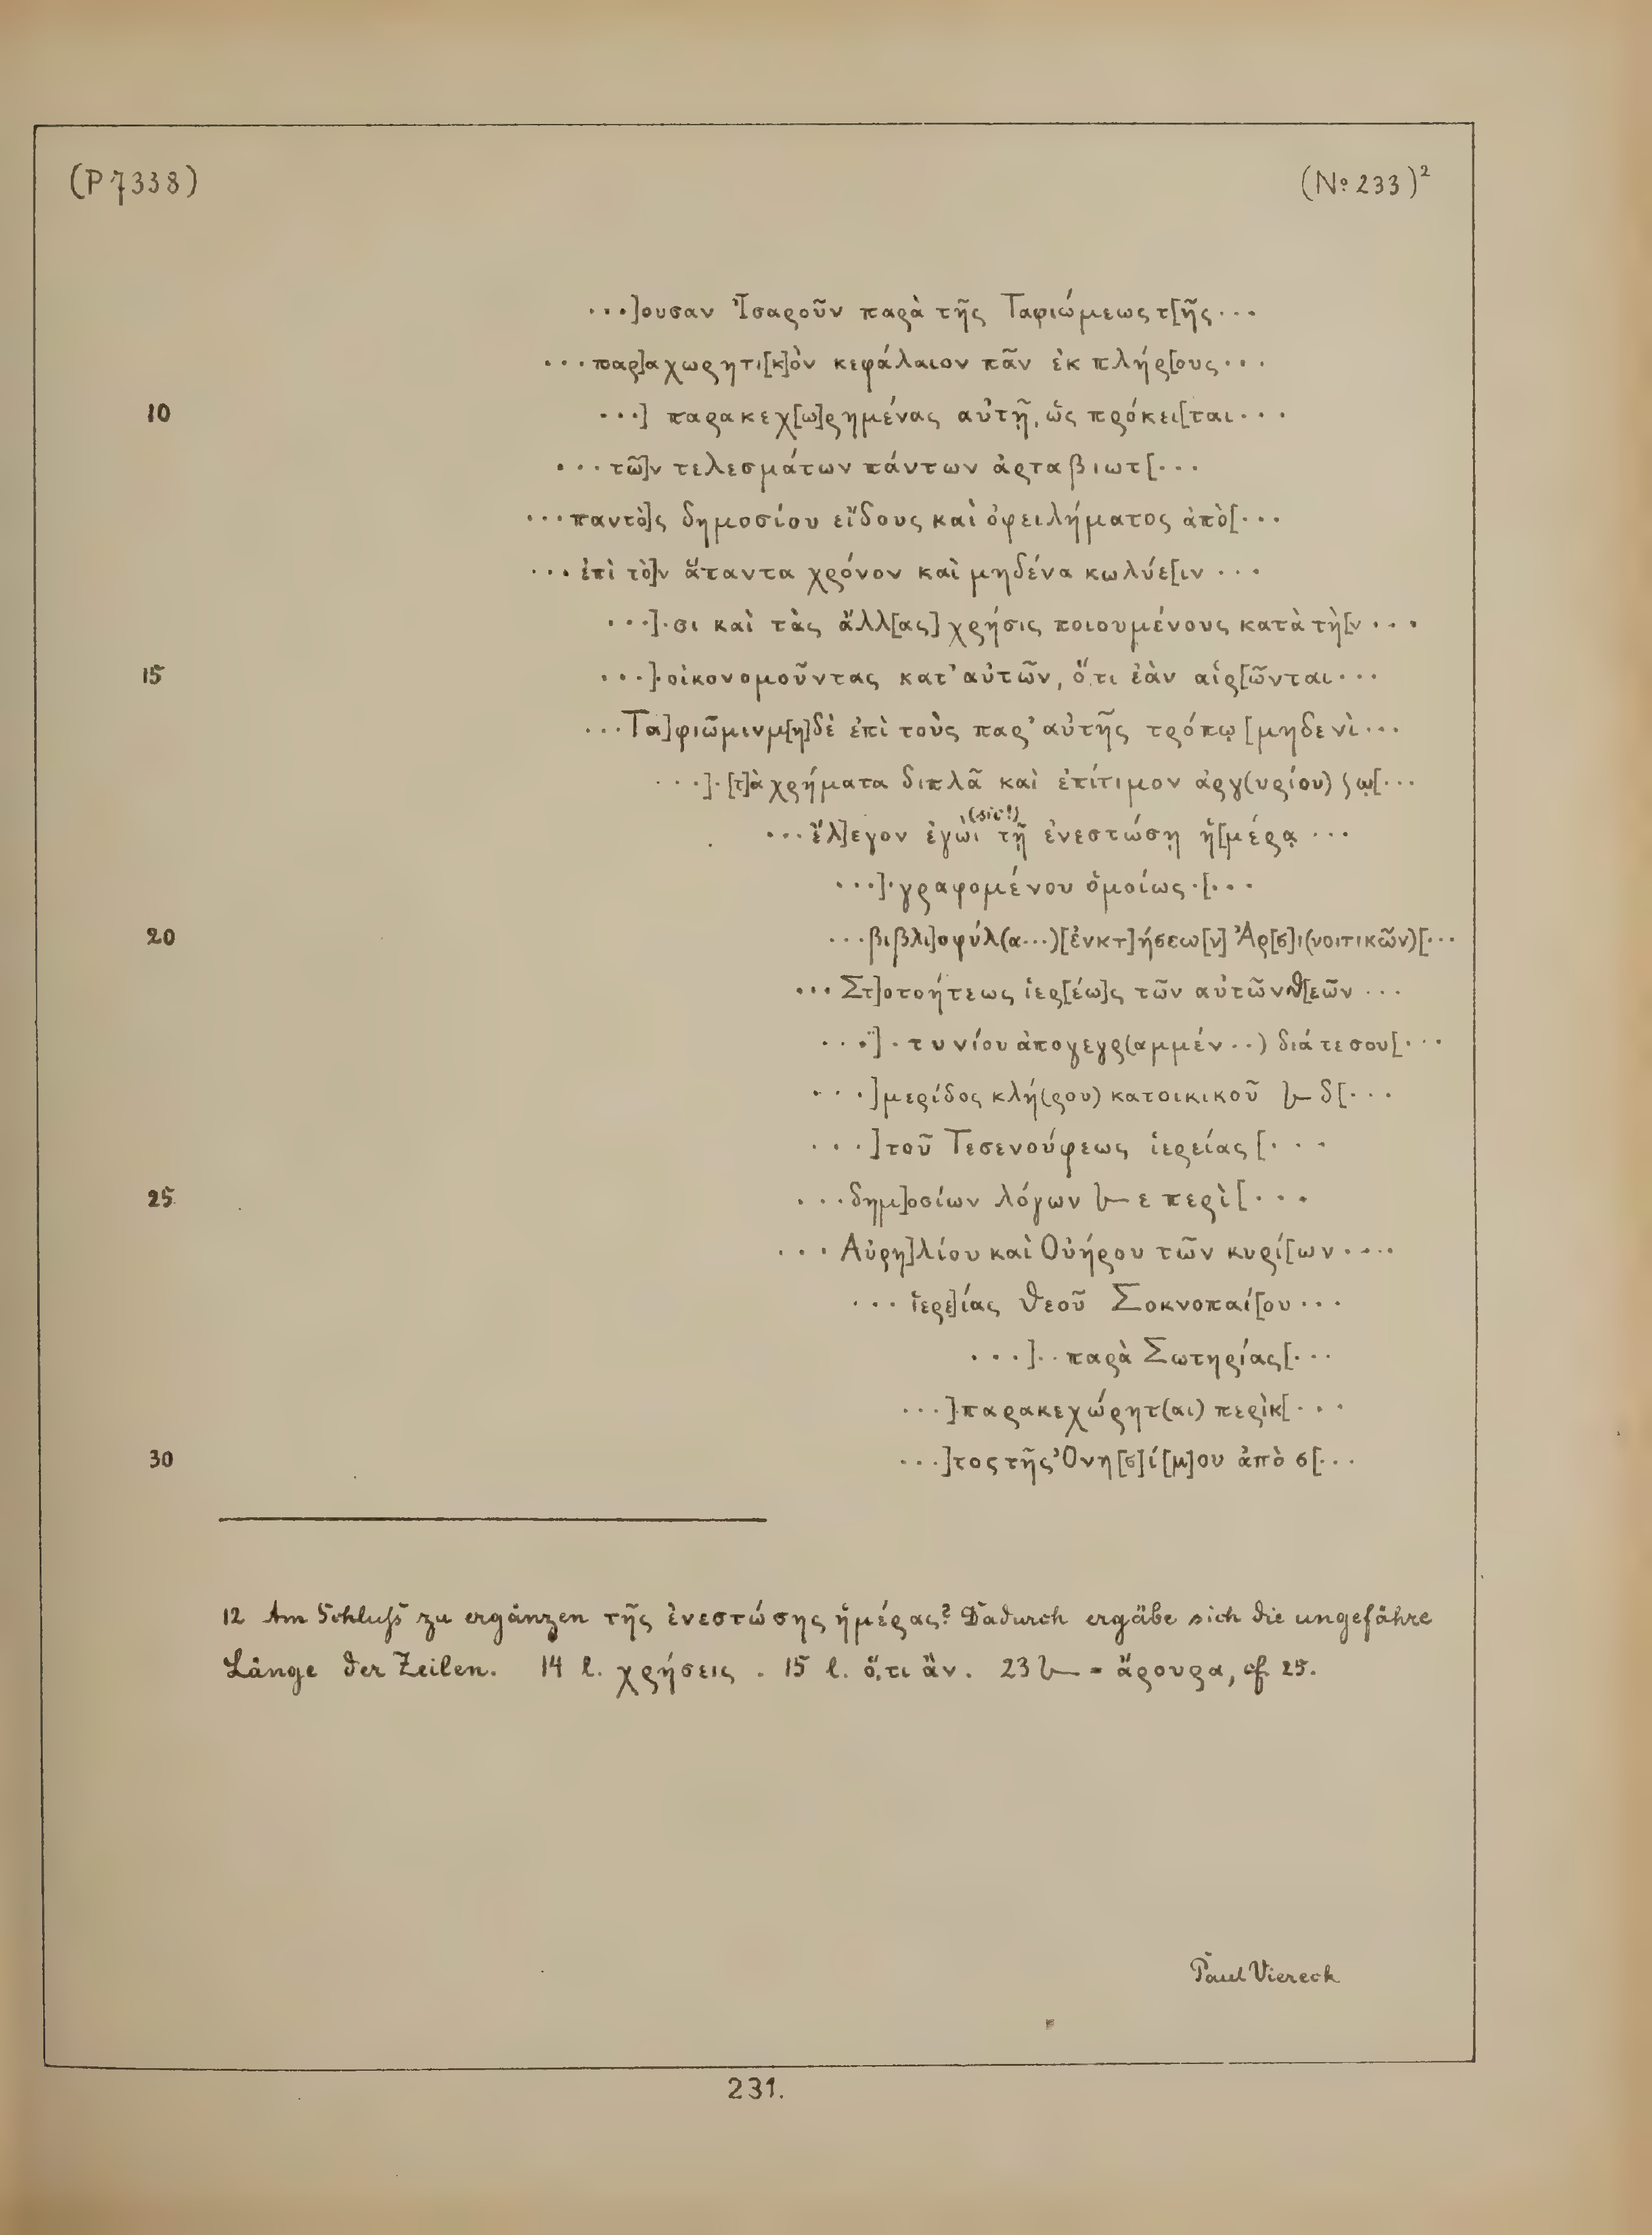 (P 7338) (No 233)²
...]ουσαν Ἰσαροῦν παρὰ τῆς Ταφιώμεως τ[ῆς...
...παρ]αχωρητι[κ]ὸν κεφάλαιον πᾶν ἐκ πλήρ[ους...
10 ...] παρακεχ[ω]ρημένας αὐτῇ, ὡς πρόκει[ται...
...τῶ]ν τελεσμάτων πάντων ἀρταβιωτ[...
...παντὸ]ς δημοσίου εἴδους καὶ ὀφειλήματος ἀπὸ[...
...ἐπὶ τὸ]ν ἅπαντα χρόνον καὶ μηδένα κωλύε[ιν ...
...].σι καὶ τὰς ἄλλ[ας] χρήσις ποιουμένους κατὰ τὴ[ν ...
15 ...].οἰκονομοῦντας κατ' αὐτῶν, ὅ,τι ἐὰν αἱρ[ῶνται...
...Τα]φιῶμιν μ[η]δὲ ἐπὶ τοὺς παρ' αὐτῆς τρόπῳ [μηδενὶ...
...].[τ]ὰ χρήματα διπλᾶ καὶ ἐπίτιμον ἀργ(υρίου) ω̣[...
(sic!)
...ἔλ]εγον ἐγὼι τῇ ἐνεστώσῃ ἡ[μέρᾳ ...
...].γραφομένου ὁμοίως.[...
20 ...βιβλι]οφύλ(α...)[ἐνκτ]ήσεω[ν] Ἀρ[σ]ι(νοιτικῶν)[...
...Στ]οτοήτεως ἱερ[έω]ς τῶν αὐτῶν θ[εῶν ...
...].τυνίου ἀπογεγρ(αμμέν..) διάτεσου[...
...]μερίδος κλή(ρου) κατοικικοῦ 𐅵 δ[...
...]τοῦ Τεσενούφεως ἱερείας [...
25 ...δημ]οσίων λόγων 𐅵 ε περὶ [...
...Αὐρη]λίου καὶ Οὐήρου τῶν κυρί[ων....
...ἱερε]ίας θεοῦ Σοκνοπαί[ου...
...]..παρὰ Σωτηρίας[...
...]παρακεχώρητ(αι) περὶκ[...
30 ...]τος τῆς Ὀνη[σ]ί[μ]ου ἀπὸ σ[...
12 Am Schluß zu ergänzen τῆς ἐνεστώσης ἡμέρας? Dadurch ergäbe sich die ungefähre
Länge der Zeilen. 14 l. χρήσεις. 15 l. ὅ,τι ἂν. 23 𐅵 = ἄρουρα, cf. 25.
Paul Viereck
231.